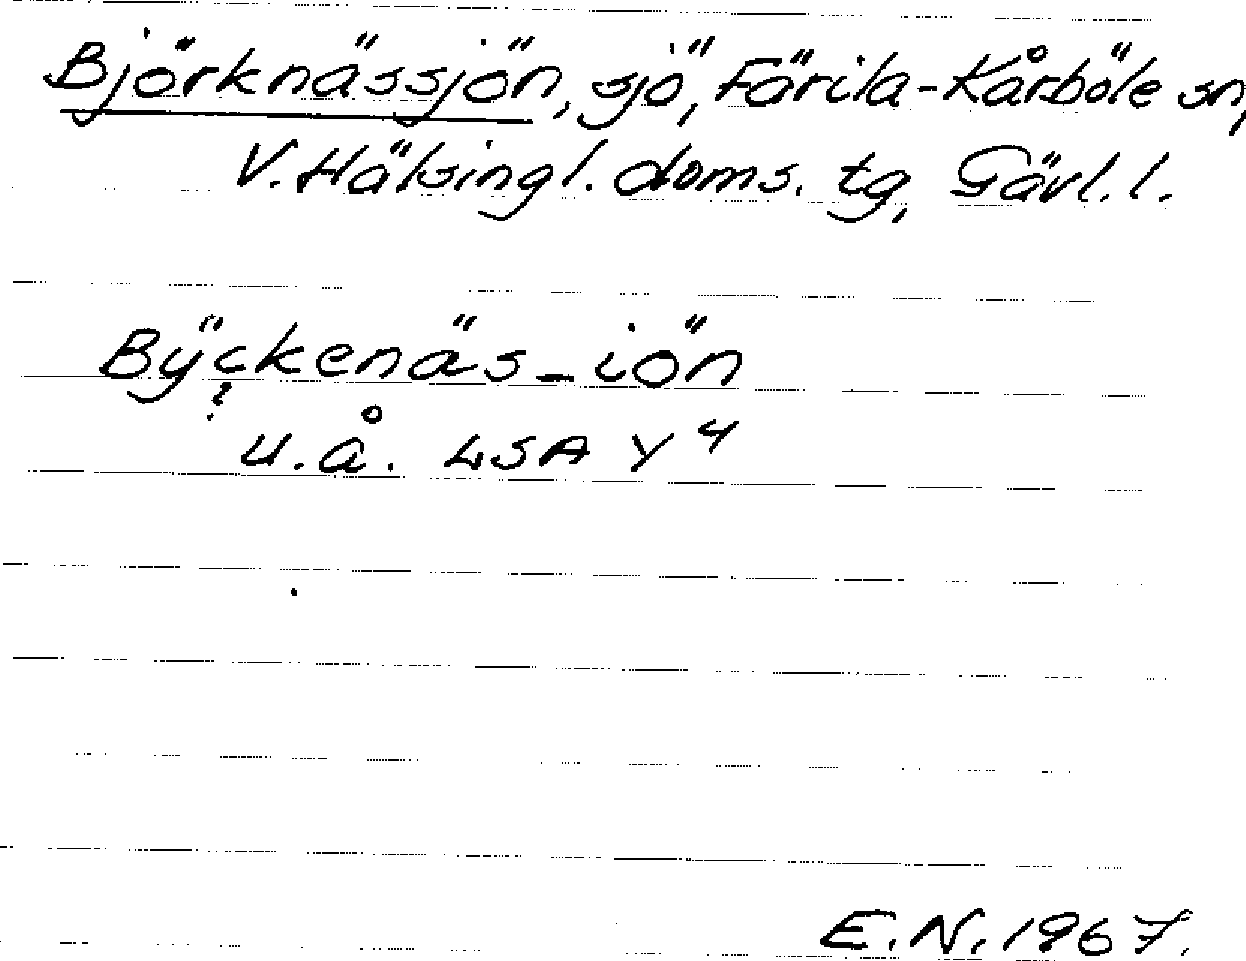 Björknässjön, sjö, Färila-Kårböle sn,
V. Hälsingl. doms. tg, Gävl. l.
Bÿckenäs-iön
?
u.å. LSA Y 4
E.N. 1967.